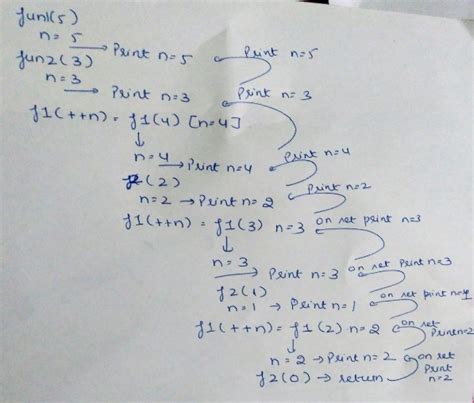 fun1(5)
n = 5
→ Print n=5 Print n=5
fun2(3)
n=3
→ Print n=3 Print n=3
f1(++n) = f1(4) [n=4]
↓
n=4 → Print n=4 Print n=4
f2(2)
n=2 → Print n=2 Print n=2
f1(++n) = f1(3) n=3 on ret print n=3
↓
n=3
→ Print n=3 on ret Print n=3
f2(1)
n=1 → Print n=1 on ret print n=4
f1(++n) = f1(2) n=2 on ret Print n=2
↓
n=2 → Print n=2 on ret Print n=2
f2(0) → return